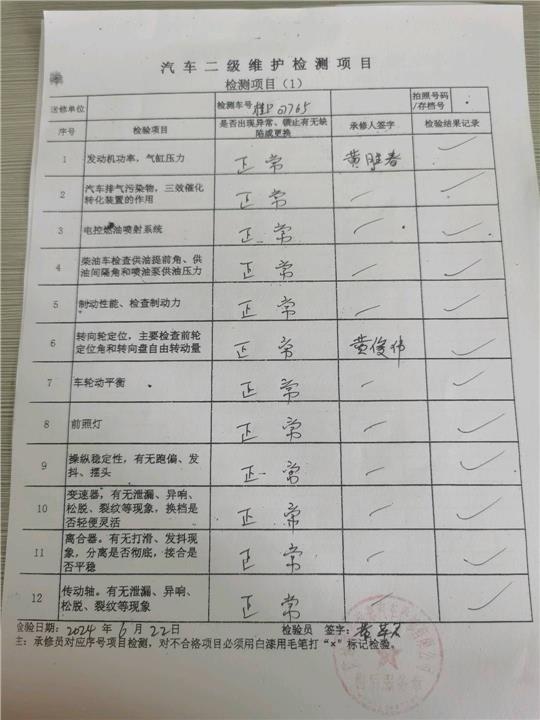 汽车二级维护检测项目
检测项目（1）
送修单位 检测车号 桂P07765 拍照号码/存档号
序号 检验项目 是否出现异常、锁止有无缺陷或更换 承修人签字 检验结果记录
1 发动机功率，气缸压力 正常 黄胜春 ✓
2 汽车排气污染物，三效催化转化装置的作用 正常 ✓
3 电控燃油喷射系统 正常 ✓
4 柴油车检查供油提前角、供油间隔角和喷油泵供油压力 正常 ✓
5 制动性能、检查制动力 正常 ✓
6 转向轮定位，主要检查前轮定位角和转向盘自由转动量 正常 黄俊伟 ✓
7 车轮动平衡 正常 ✓
8 前照灯 正常 ✓
9 操纵稳定性，有无跑偏、发抖、摆头 正常 ✓
10 变速器，有无泄漏、异响、松脱、裂纹等现象，换档是否轻便灵活 正常 ✓
11 离合器。有无打滑、发抖现象，分离是否彻底，接合是否平稳 正常 ✓
12 传动轴。有无泄漏、异响、松脱、裂纹等现象 正常 ✓
检验日期：2024年6月22日 检验员 签字：
主：承修员对应序号项目检测，对不合格项目必须用白漆用毛笔打“×”标记检验。